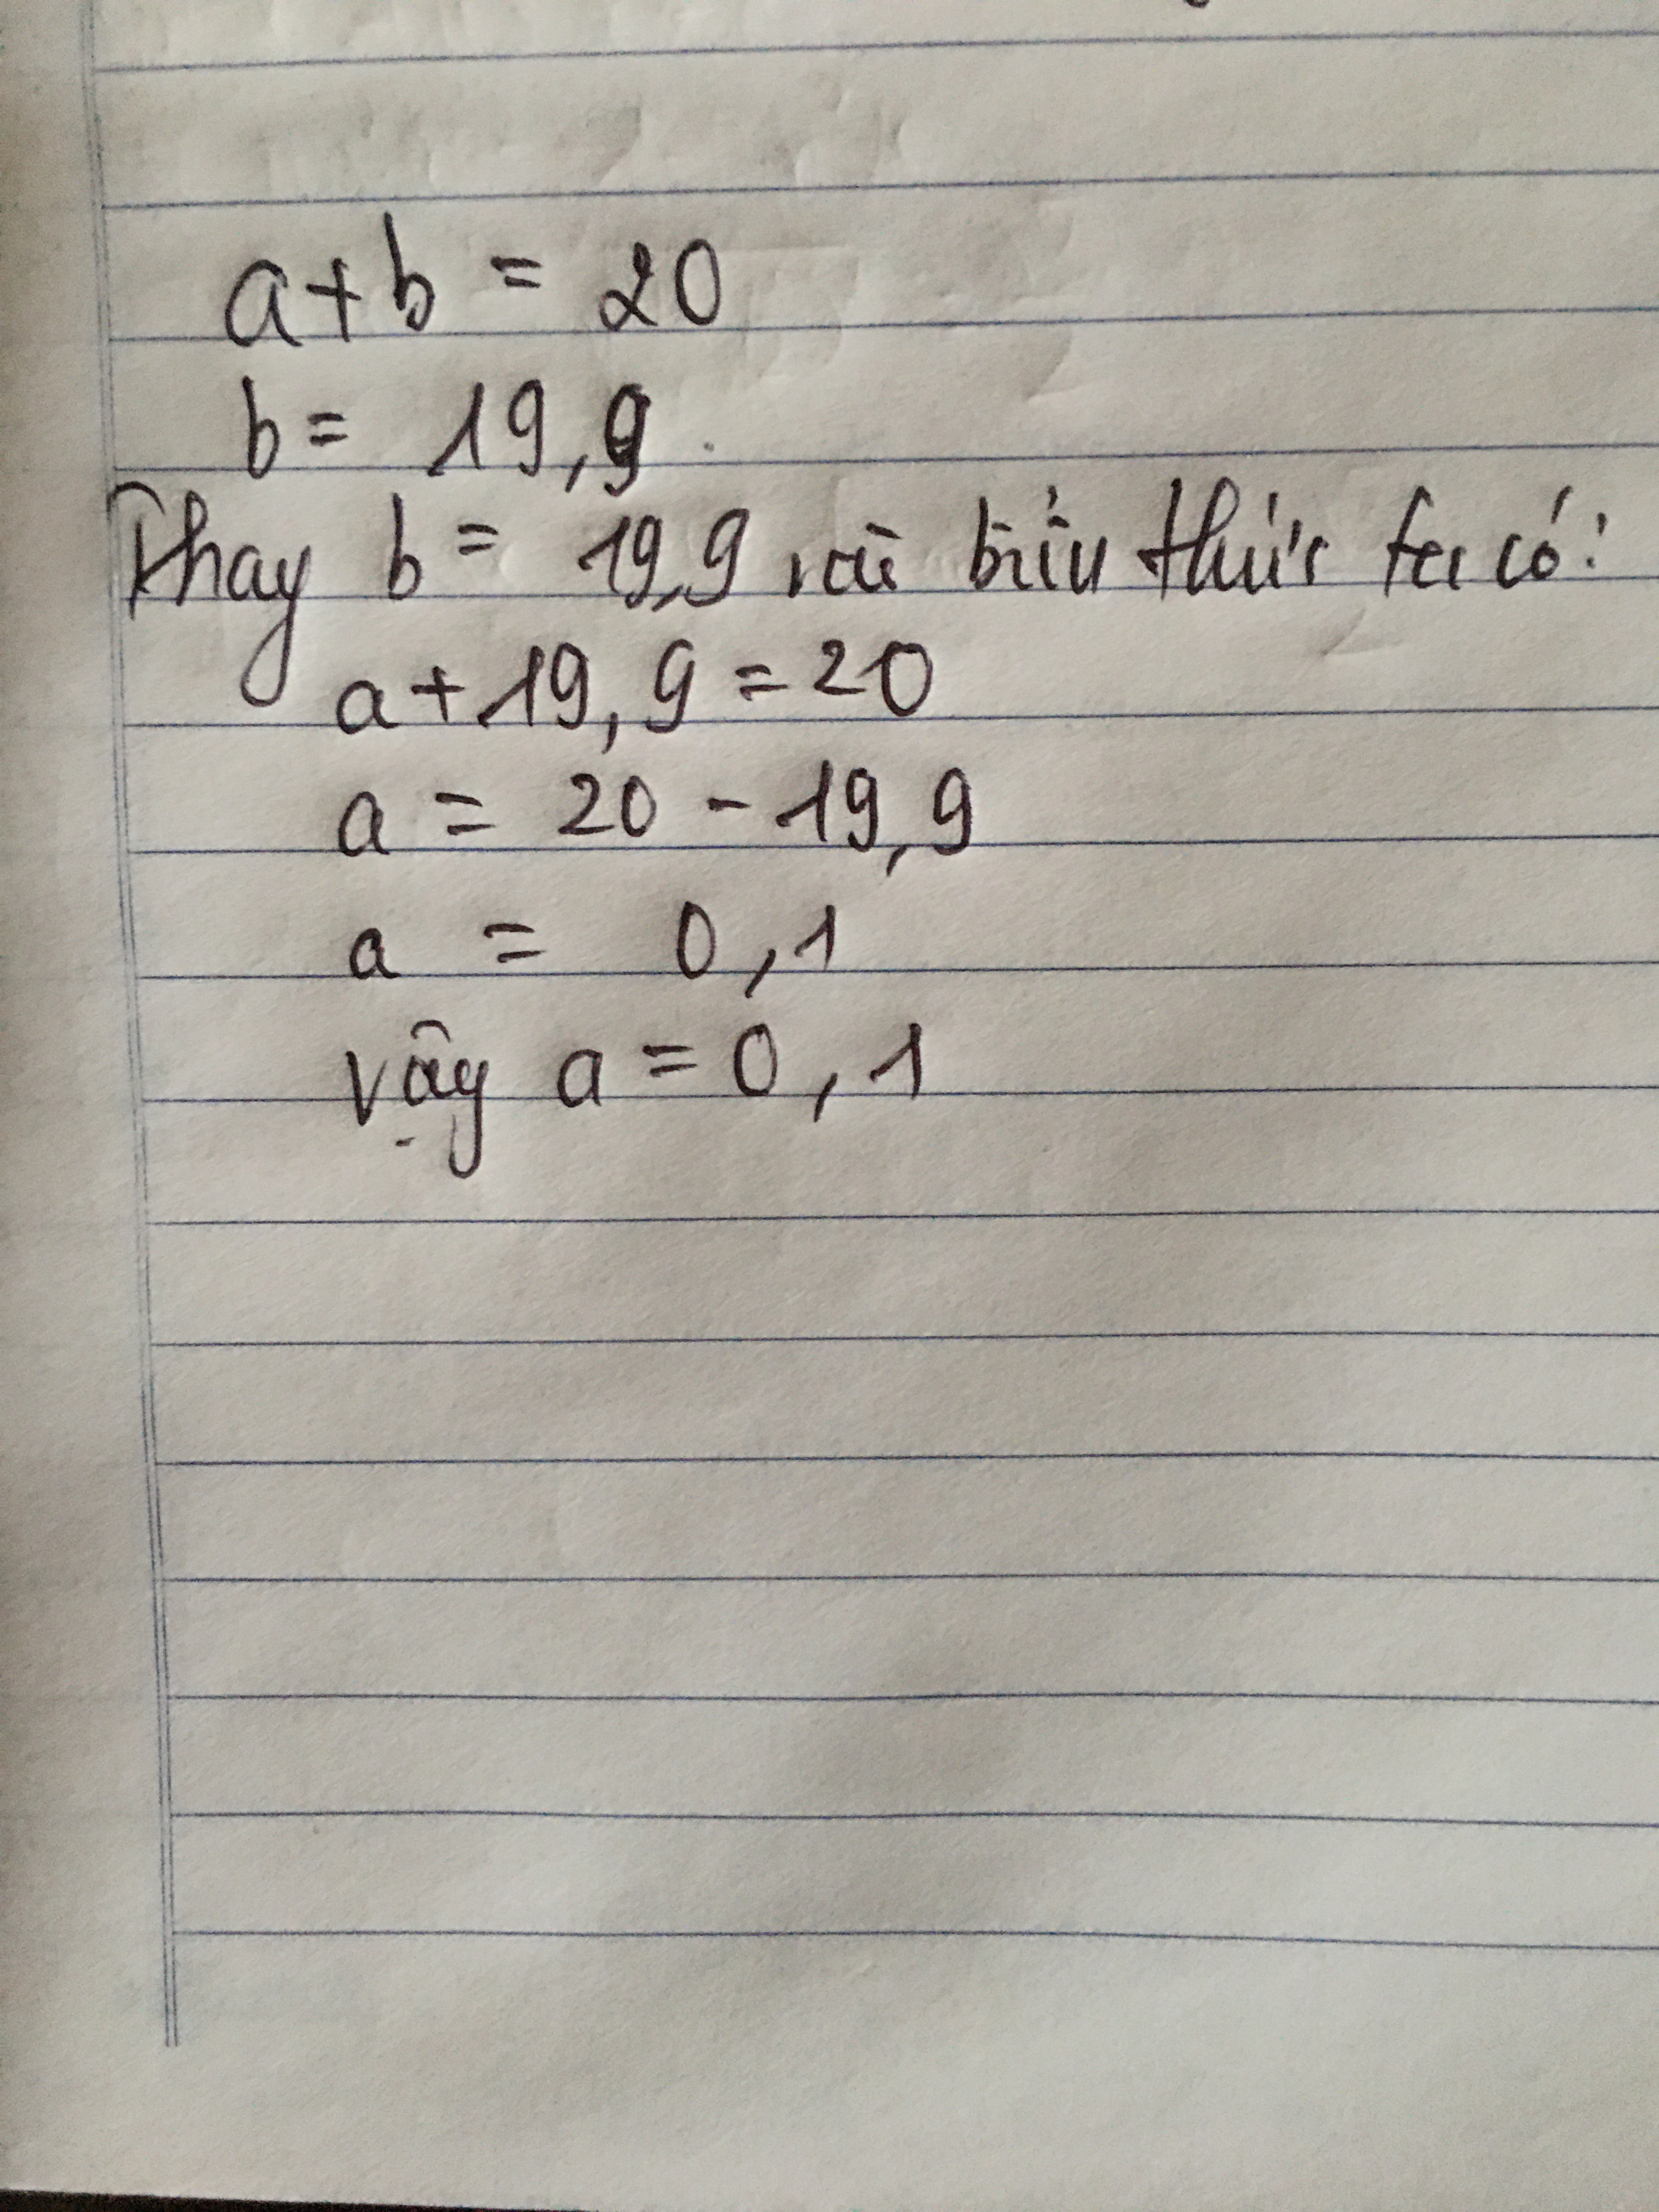 a + b = 20
b = 19,9
Thay b = 19,9 vào biểu thức ta có:
a + 19,9 = 20
a = 20 - 19,9
a = 0,1
vậy a = 0,1